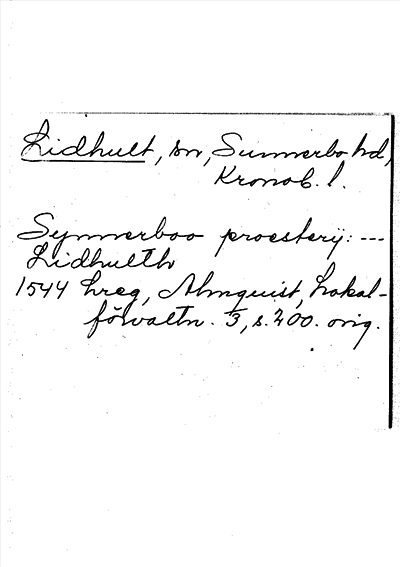 Lidhult, sn, Sunnerbo hd,
Kronob. l.
Synnerboo proesterij: ---
Lidhullth
1544 hreg, Almquist, Lokal-
förvaltn. 3, s. 200. orig.